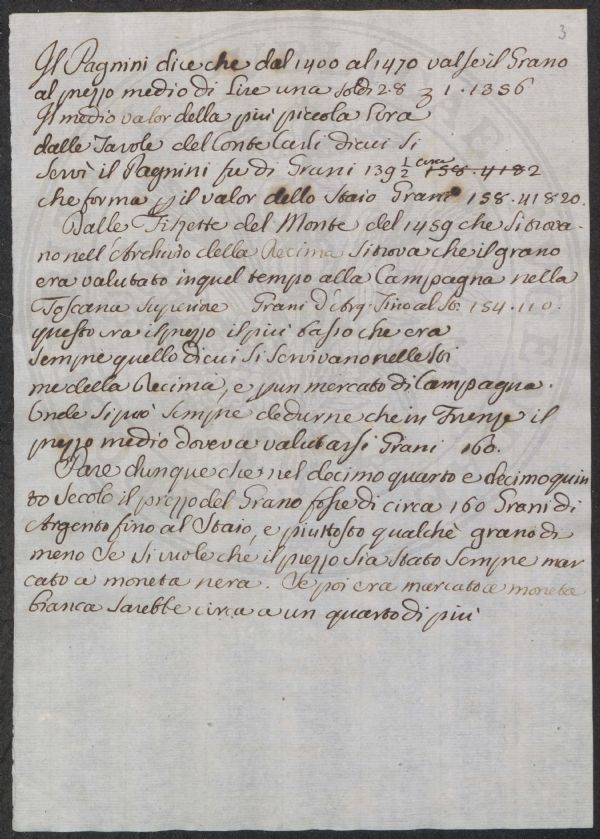 3
Il Pagnini dice che dal 1400 al 1470 valse il Grano
al prezzo medio di Lire una soldi 2.8 1.1356
Il medio valor della piu piccola Lira
dalle Tavole del Conte Carli di cui si
servì il Pagnini fu di Grani 139 1/2 circa 158.4182
che forma il valor dello Staio Grani 158.41820.
Dalle del Monte del 1459 che si trova-
no nell'Archivio della Decima si trova che il grano
era valutato in quel tempo alla Campagna nella
Toscana Superiore Grani d'Arg: Fino al St: 154.110.
questo era il prezzo il piu basso che era
sempre quello di cui si servivano nelle sti
me della Decima, e p un mercato di Campagna.
Onde si può sempre dedurne che in Firenze il
prezzo medio doveva valutarsi Grani 160.
Pare dunque che nel decimo quarto e decimo quin
to secolo il prezzo del Grano fosse di circa 160 Grani di
Argento fino al Staio, e piuttosto qualche grano di
meno se si vuole che il prezzo sia stato sempre mar
cato a moneta nera. Se poi era marcato a moneta
bianca sarebbe circa a un quarto di più